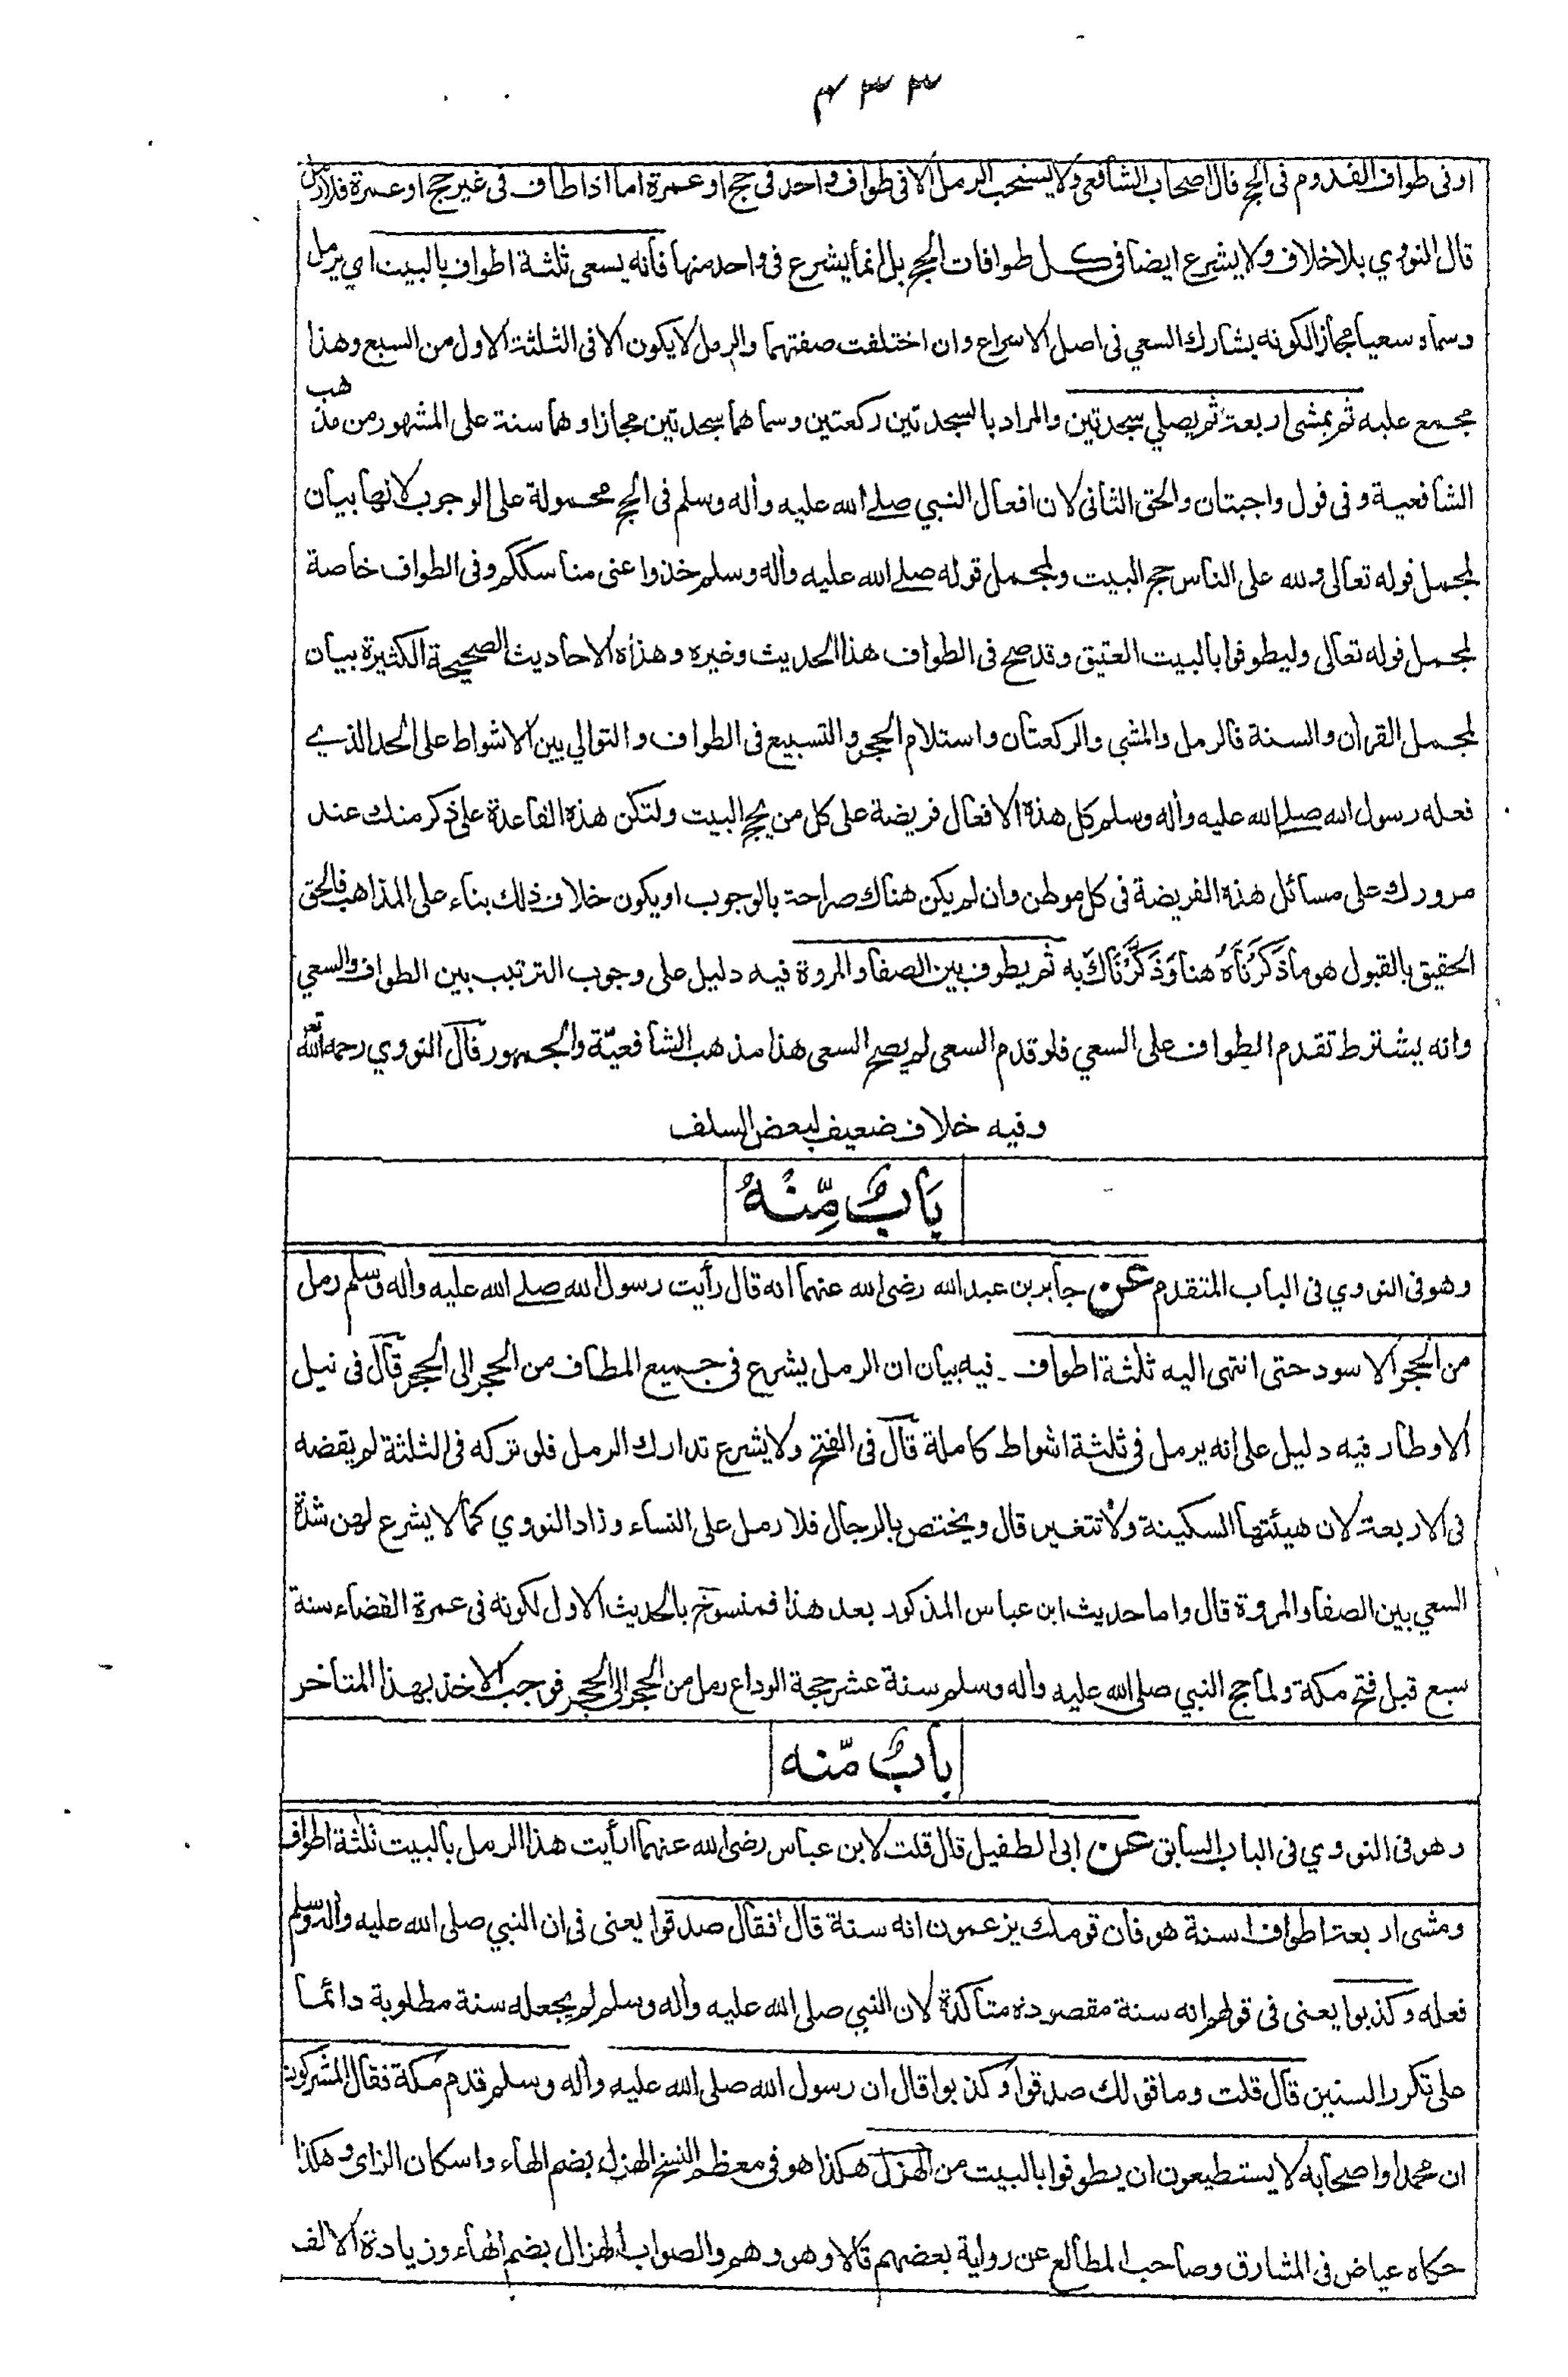 ۴۳۳
او فى طواف القدوم فى الحج قال اصحاب الشافعى ولا يستحب الرمل الا فى طواف واحد فى حج او عمرة اما اذا طاف فى غير حج او عمرة فلا رمل
قال النووي بلا خلاف ولا يشرع ايضا فى كل طوافات الحج بل انما يشرع فى واحد منها فانه يسعى ثلثة اطواف بالبيت اي يرمل
وسماه سعيا مجازا لكونه يشارك السعي فى اصل الاسراع وان اختلفت صفتهما والرمل لا يكون الا فى الثلثة الاول من السبع وهذا
مجمع عليه ثم يمشى اربعة ثم يصلي سجدتين والمراد بالسجدتين ركعتين وسماهما سجدتين مجازا وهما سنة على المشهور من مذهب
الشافعية وفى قول واجبتان والحق الثانى لان افعال النبي صلے الله عليه وأله وسلم فى الحج محمولة على الوجوب لانها بيان
لمجمل قوله تعالى ولله على الناس حج البيت ولمجمل قوله صلے الله عليه وأله وسلم خذوا عنى مناسككم وفى الطواف خاصة
لمجمل قوله تعالى وليطوفوا بالبيت العتيق وقد صح فى الطواف هذا الحديث وغيره وهذه الاحاديث الصحيحة الكثيرة بيان
لمجمل القرأن والسنة فالرمل والمشي والركعتان واستلام الحجر والتسبيع فى الطواف والتوالي بين الاشواط على الحد الذي
فعله رسول الله صلے الله عليه وأله وسلم كل هذه الافعال فريضة على كل من يحج البيت ولتكن هذه القاعدة على ذكر منك عند
مرورك على مسائل هذه الفريضة فى كل موطن وان لم يكن هناك صراحة بالوجوب او يكون خلاف ذلك بناء على المذاهب فالحق
الحقيق بالقبول هو ما ذَكَرْنَاهُ هنا وَذَكَّرْنَاكَ به ثم يطوف بين الصفا والمروة فيه دليل على وجوب الترتيب بين الطواف والسعي
وانه يشترط تقدم الطواف على السعي فلو قدم السعى لم يصح السعى هذا مذهب الشافعيّة والجمهور قال النووي رحمه الله تعم
وفيه خلاف ضعيف لبعض السلف
بَابٌ مِّنْهُ
وهو فى النووي فى الباب المتقدم عن جابر بن عبد الله رضى الله عنهما انه قال رأيت رسول الله صلے الله عليه وأله وسلم رمل
من الحجر الاسود حتى انتهى اليه ثلثة اطواف ـ فيه بيان ان الرمل يشرع فى جميع المطاف من الحجر الى الحجر قال فى نيل
الاوطار فيه دليل على انه يرمل فى ثلثة اشواط كاملة قال فى الفتح ولا يشرع تدارك الرمل فلو تركه فى الثلثة لم يقضه
فى الاربعة لان هيئتها السكينة ولا تتغير قال ويختص بالرجال فلا رمل على النساء وزاد النووي كما لا يشرع لهن شدة
السعي بين الصفا والمروة قال واما حديث ابن عباس المذكور بعد هذا فمنسوخ بالحديث الاول لكونه فى عمرة القضاء سنة
سبع قبل فتح مكة ولما حج النبي صلى الله عليه وأله وسلم سنة عشر حجة الوداع رمل من الحجر الى الحجر فوجب الاخذ بهذا المتاخر
بابٌ مّنه
وهو فى النووي فى الباب السابق عن ابى الطفيل قال قلت لابن عباس رضى الله عنهما ارأيت هذا الرمل بالبيت ثلثة اطواف
ومشى اربعة اطواف اسنة هو فان قومك يزعمون انه سنة قال فقال صدقوا يعنى فى ان النبي صلى الله عليه وأله وسلم
فعله وكذبوا يعنى فى قولهم انه سنة مقصودة متاكدة لان النبي صلى الله عليه وأله وسلم لم يجعله سنة مطلوبة دائما
على تكرر السنين قال قلت وما قولك صدقوا وكذبوا قال ان رسول الله صلى الله عليه وأله وسلم قدم مكة فقال المشركون
ان محمدا واصحابه لا يستطيعون ان يطوفوا بالبيت من الهزل هكذا هو فى معظم النسخ الهزل بضم الهاء واسكان الزاى وهكذا
حكاه عياض فى المشارق وصاحب المطالع عن رواية بعضهم قالا وهو وهم والصواب الهزال بضم الهاء وزيادة الالف